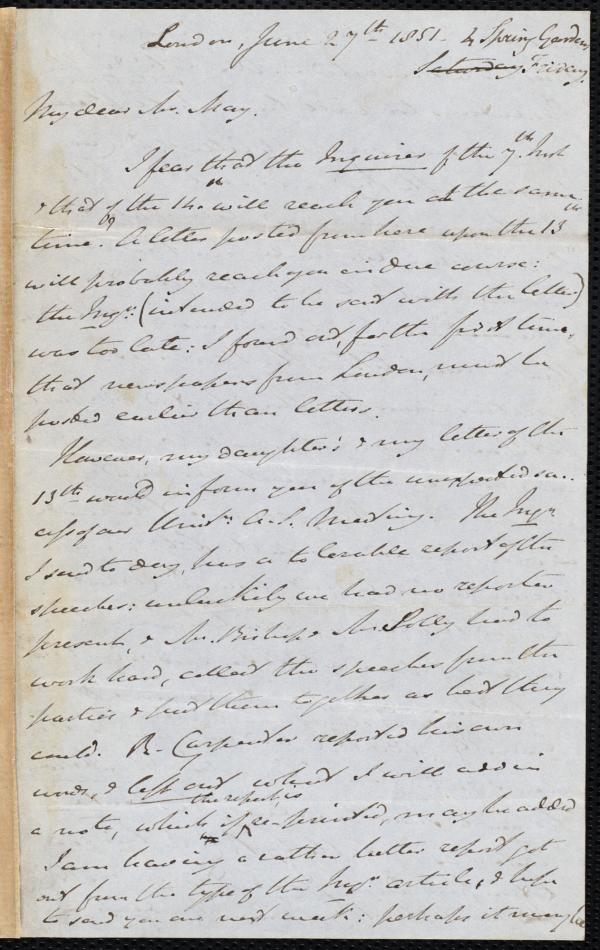 London, June 27th 1851 - 4 Spring Gardens
Saturday Friday.
My dear Mr. May.
I fear that the Inquirer of the 7th. Inst
& that of the 14th. will reach you at the same
time. A letter posted from here upon the 13th
will probably reach you in due course:
the Inqr. (intended to be sent with the letter)
was too late: I found out, for the first time,
that newspapers from London, must be
posted earlier than letters.
However, my daughter's & my letter of the
13th would inform you of the unexpected suc-
cess of our Unitn. A.S. Meeting. The Inqr
I send to day, has a tolerable report of the
speeches: unluckily we had no reporter
present, & Mr. Bishop & Mr Solly had to
work hard, collect the speeches from the
parties & put them together as best they
could. R- Carpenter reported his own
words, & left out what I will add in
a note, which if the report is re-printed, may be added
I am having a rather better report got
out from the type of the Inqr. article, & hope
to send you one next week: perhaps it may be